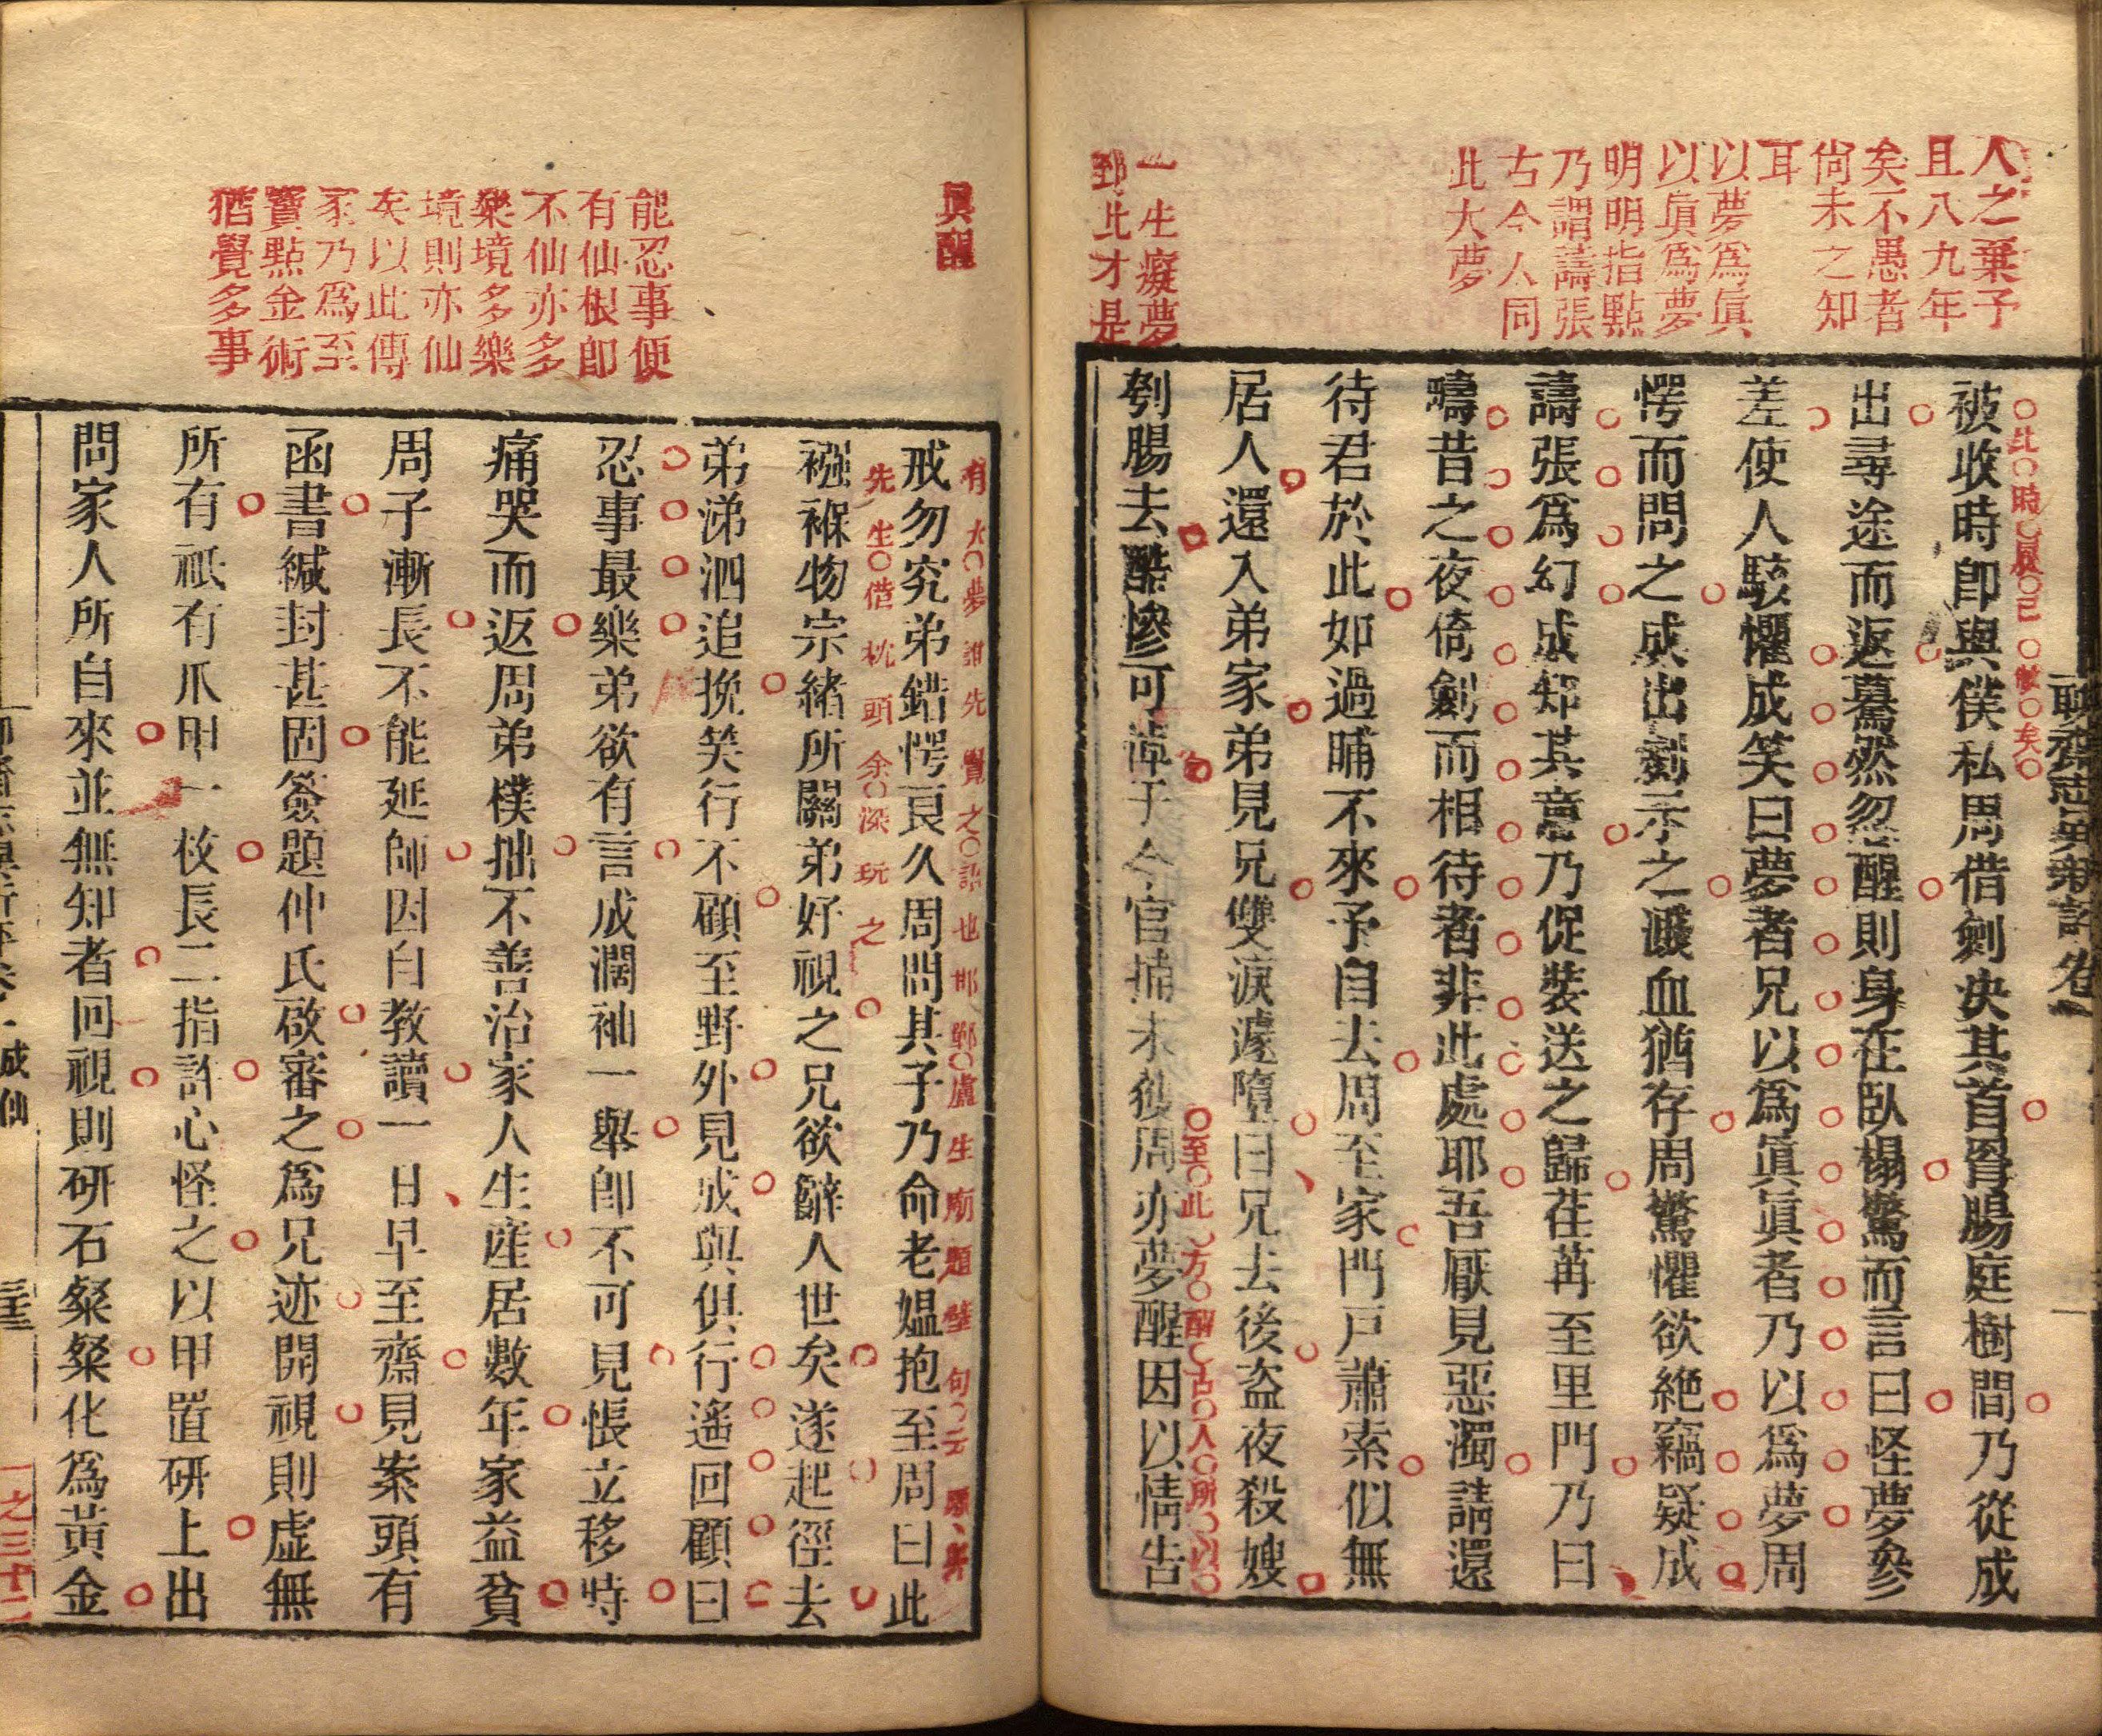 人之棄予
且八九年
矣不愚者
尚未之知
耳
以夢爲眞
以眞爲夢
明明指點
乃謂譸張
古今人同
此大夢
一生癡夢
到此才是
聊齋志異新評卷一
此時展已
矣
被收時卽與僕私周借劍決其首罥腸庭樹間乃從成
出尋途而返驀然忽醒則身在臥榻驚而言曰怪夢參
差使人駭懼成笑曰夢者兄以爲眞眞者乃以爲夢周
愕而問之成出劍示之濺血猶存周驚懼欲絶竊疑成
譸張爲幻成知其意乃促裝送之歸荏苒至里門乃曰
疇昔之夜倚劍而相待者非此處耶吾厭見惡濁請還
待君於此如過晡不來予自去周至家門戶蕭索似無
居人還入弟家弟見兄雙淚遽墮曰兄去後盜夜殺嫂
刳腸去酷慘可悼于今官捕未獲周亦夢醒因以情告
至此方醒古人所以
眞醒
能忍事便
有仙根卽
不仙亦多
樂境多樂
境則亦仙
矣以此傳
家乃爲至
寶點金術
猶覺多事
有大夢誰先覺之詔也邯鄲盧生廟題壁句云願與
先生借枕頭余深玩之
戒勿究弟錯愕良久周問其子乃命老媼抱至周曰此
襁褓物宗緒所關弟好視之兄欲辭人世矣遂起徑去
弟涕泗追挽笑行不顧至野外見成與俱行遙回顧曰
忍事最樂弟欲有言成濶袖一舉卽不可見悵立移時
痛哭而返周弟樸拙不善治家人生産居數年家益貧
周子漸長不能延師因自教讀一日早至齋見案頭有
函書緘封甚固簽題仲氏啟審之爲兄迹開視則虛無
所有祇有爪甲一枚長二指許心怪之以甲置研上出
問家人所自來並無知者回視則研石粲粲化爲黃金
聊齋志異新評卷一 成仙
一之三十二